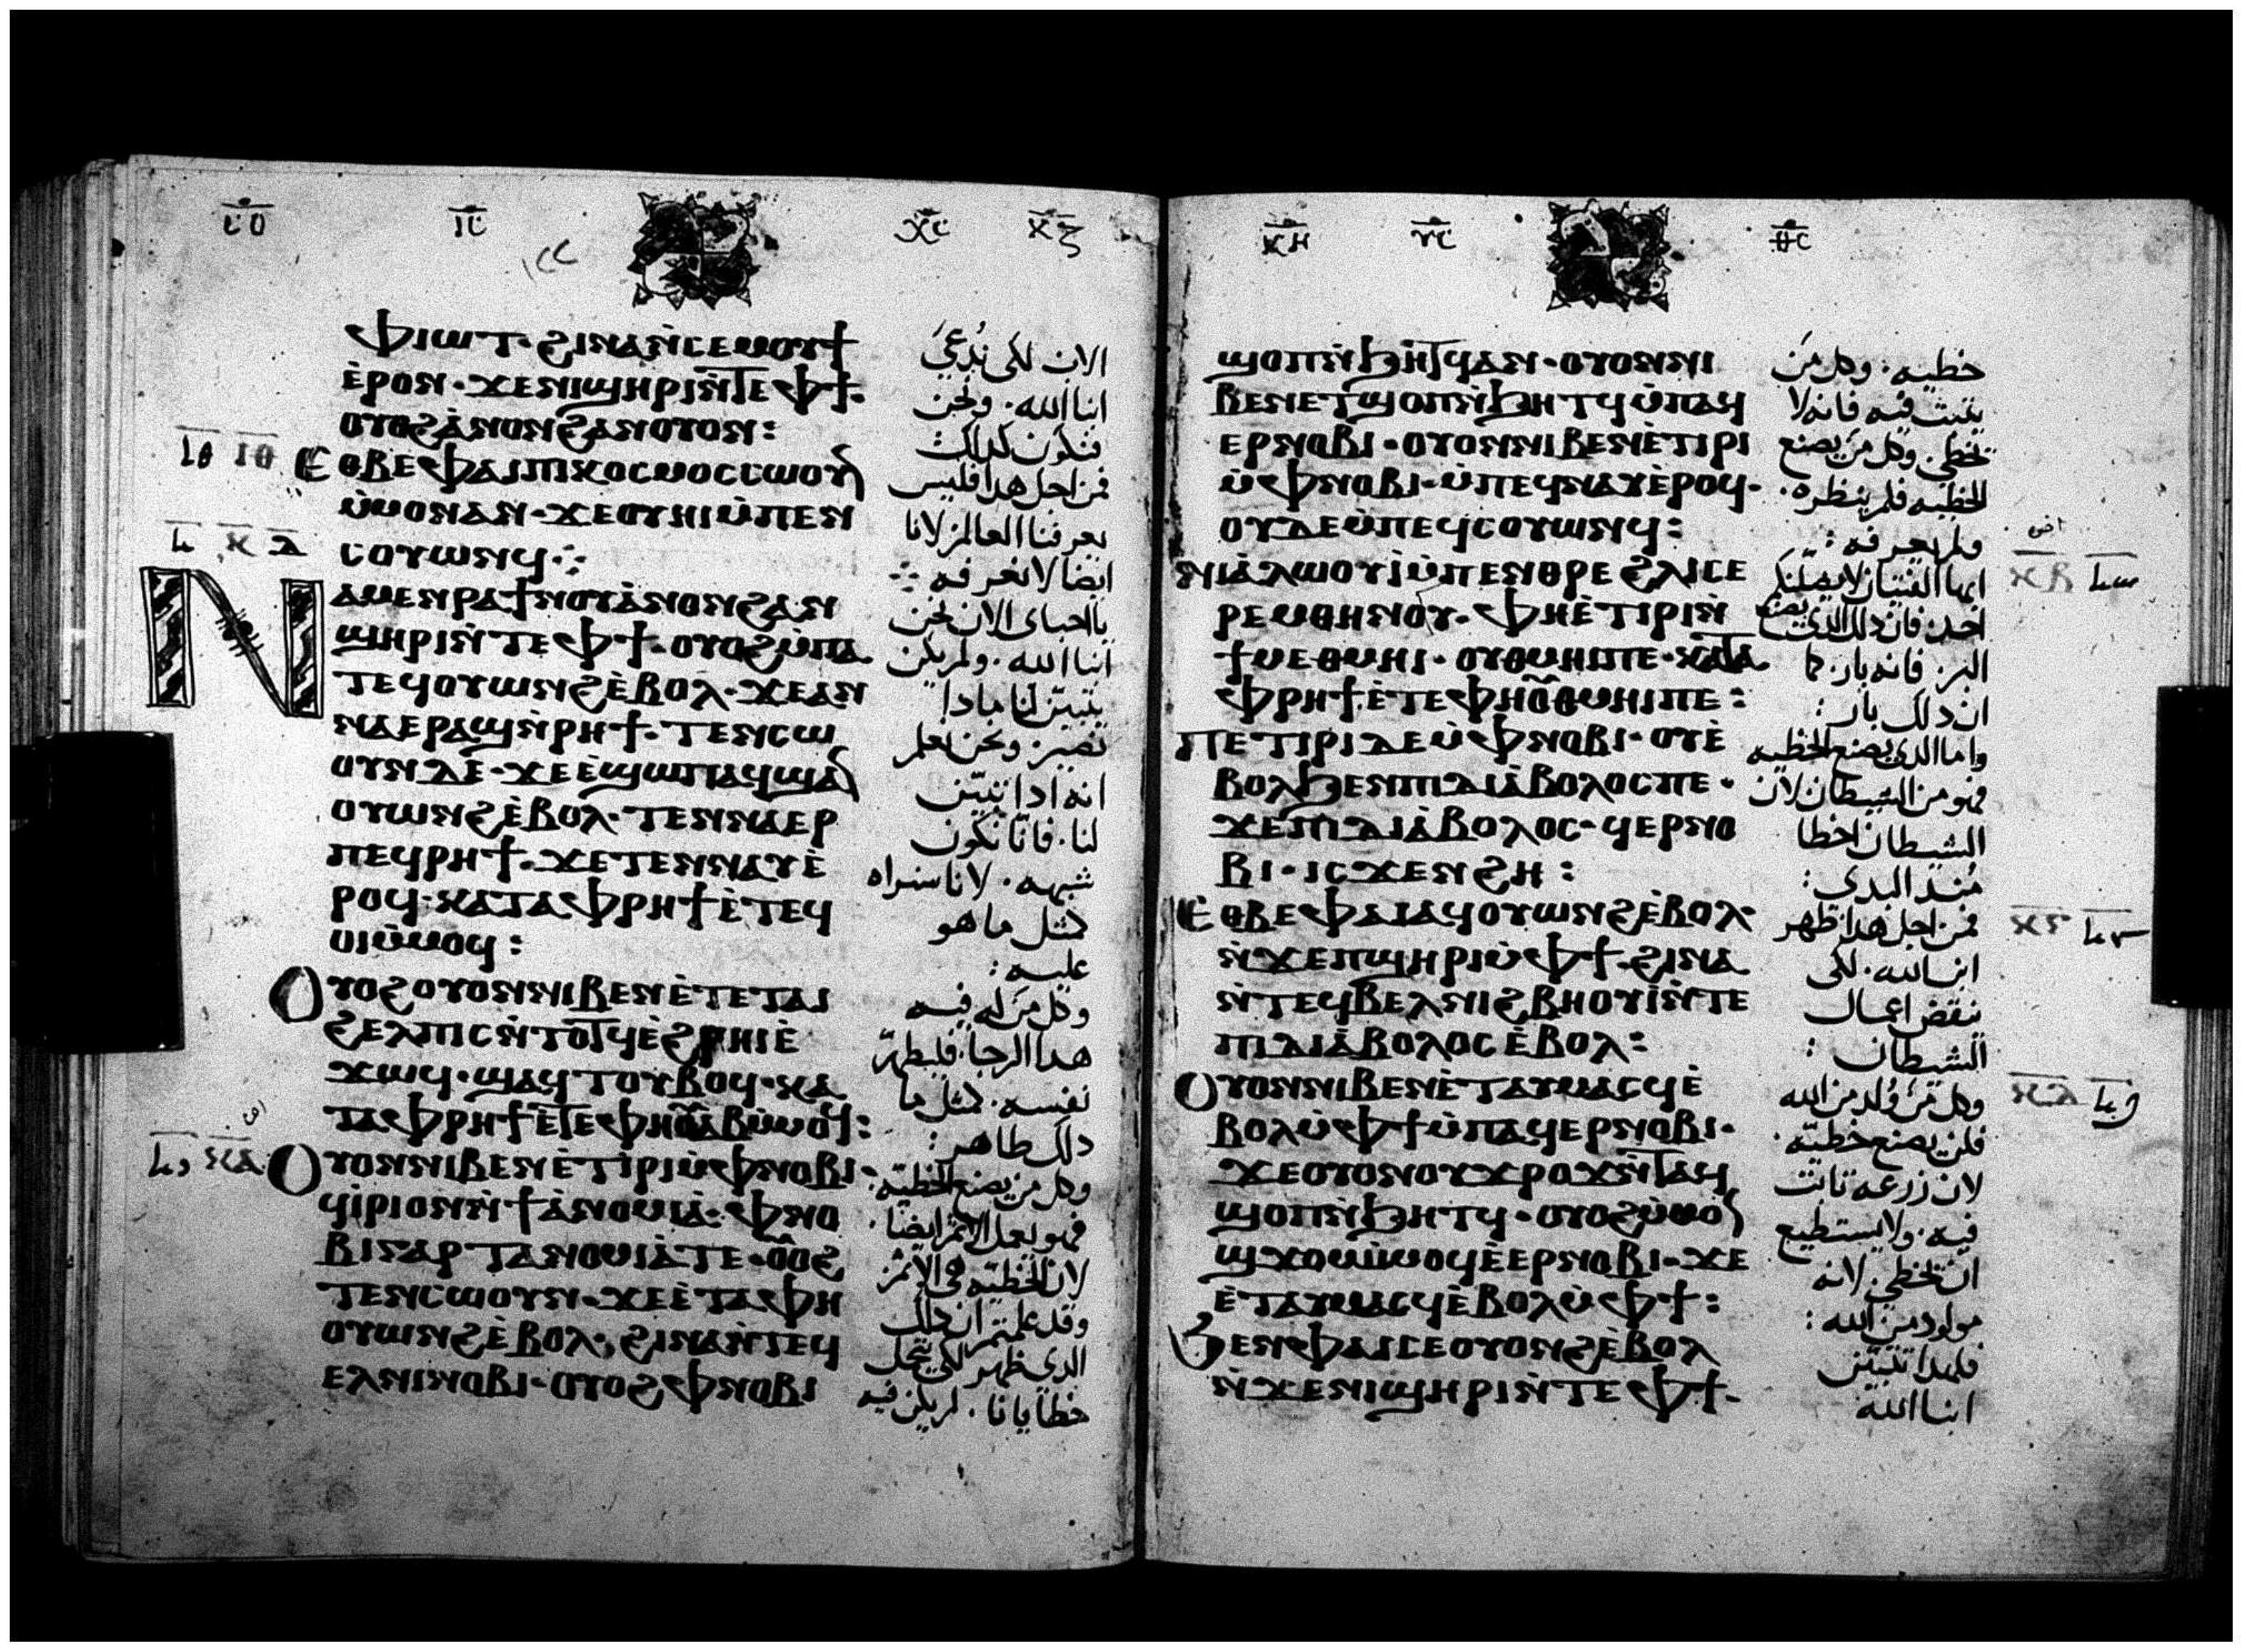 ⲓ̅ⲥ̅ ⲭ̅ⲥ̅ ⲕ̅ⲍ̅
ⲫⲓⲱⲧ· ϩⲓⲛⲁⲛ̀ⲥⲉⲙⲟⲩϯ
ⲉ̀ⲣⲟⲛ· ϫⲉⲛⲓϣⲏⲣⲓⲛ̀ⲧⲉⲫϯ·
ⲟⲩⲟϩⲁ̀ⲛⲟⲛϩⲁⲛⲟⲩⲟⲛ:
ⲉⲑⲃⲉⲫⲁⲓⲡⲓⲕⲟⲥⲙⲟⲥⲥⲱⲟⲩⲛ
ⲙ̀ⲙⲟⲛⲁⲛ· ϫⲉⲟⲩⲏⲓⲙ̀ⲡⲉⲛ
ⲥⲟⲩⲱⲛϥ:
ⲛⲁⲙⲉⲛⲣⲁϯⲛⲟⲩⲁ̀ⲛⲟⲛϩⲁⲛ
ϣⲏⲣⲓⲛ̀ⲧⲉⲫϯ· ⲟⲩⲟϩⲙ̀ⲡⲁ
ⲧⲉϥⲟⲩⲱⲛϩⲉ̀ⲃⲟⲗ· ϫⲉⲁⲛ
ⲛⲁⲉⲣⲁϣⲛ̀ⲣⲏϯ· ⲧⲉⲛⲥⲱ
ⲟⲩⲛⲇⲉ· ϫⲉⲉ̀ϣⲱⲡⲁϥϣⲁⲛ
ⲟⲩⲱⲛϩⲉ̀ⲃⲟⲗ· ⲧⲉⲛⲛⲁⲉⲣ
ⲡⲉϥⲣⲏϯ· ϫⲉⲧⲉⲛⲛⲁⲩⲉ̀
ⲣⲟϥ· ⲕⲁⲧⲁⲫⲣⲏϯⲉ̀ⲧⲉϥ
ⲟⲓⲙ̀ⲙⲟϥ:
ⲟⲩⲟϩⲟⲩⲟⲛⲛⲓⲃⲉⲛⲉ̀ⲧⲉⲧⲁⲓ
ϩⲉⲗⲡⲓⲥⲛ̀ⲧⲟⲧϥⲉ̀ϩⲣⲏⲓⲉ̀
ϫⲱϥ· ϣⲁϥⲧⲟⲩⲃⲟϥ· ⲕⲁ
ⲧⲁⲫⲣⲏϯⲉ̀ⲧⲉⲫⲏⲟ̅ⲩ̅ⲁⲃⲙ̀ⲙⲟϥ:
ⲟⲩⲟⲛⲛⲓⲃⲉⲛⲉ̀ⲧⲓⲣⲓⲙ̀ⲫⲛⲟⲃⲓ·
ϥⲓ̀ⲣⲓⲟⲛⲛ̀ϯⲁ̀ⲛⲟⲙⲓⲁ̀· ⲫⲛⲟ
ⲃⲓⲅⲁⲣⲧⲁⲛⲟⲙⲓⲁ̀ⲧⲉ· ⲟ̅ⲟ̅ϩ
ⲧⲉⲛⲥⲱⲟⲩⲛ· ϫⲉⲉ̀ⲧⲁⲫⲏ
ⲟⲩⲱⲛϩⲉ̀ⲃⲟⲗ, ϩⲓⲛⲁⲛ̀ⲧⲉϥ
ⲉⲗⲛⲓⲛⲟⲃⲓ· ⲟⲩⲟϩⲫⲛⲟⲃⲓ
الان لكى نُدعىَ
ابنا الله· ونحن
فنكون كدلك
فمن اجل هدا فليس
يعرفنا العالم لانا
ايضا لانعرفه ∴
يااحباى الان نحن
ابنا الله· ولم يكن
يتبيّن لنا مادا
نصير· ونحن نعلم
انه ادا تبيّن
لنا· فانّا نكون
شبهه· لانا سنراه
كمثل ما هو
عليه:
وكل مَن له فيه
هدا الرجا· فليطهّر
نفسه· كمثل ما
دلك طاهر:
وكل من يصنع الخطيّه·
فهو يعمل الاثم ايضا·
لان الخطيّه هى الاثم
وقد علمتم ان دلك
الدى ظهر لكى يحمل
خطايانا· لم يكن فيه
ⲕ̅ⲏ̅ ⲩ̅ⲥ̅ ⲑ̅ⲥ̅
ϣⲟⲡⲛ̀ϧⲏⲧϥⲁⲛ· ⲟⲩⲟⲛⲛⲓ
ⲃⲉⲛⲉⲧϣⲟⲡⲛ̀ϧⲏⲧϥⲙ̀ⲡⲁϥ
ⲉⲣⲛⲟⲃⲓ· ⲟⲩⲟⲛⲛⲓⲃⲉⲛⲉ̀ⲧⲓⲣⲓ
ⲙ̀ⲫⲛⲟⲃⲓ· ⲙ̀ⲡⲉϥⲛⲁⲩⲉ̀ⲣⲟϥ·
ⲟⲩⲇⲉⲙ̀ⲡⲉϥⲥⲟⲩⲱⲛϥ:
ⲛⲓⲁ̀ⲗⲱⲟⲩⲓ̀ⲙ̀ⲡⲉⲛⲑⲣⲉϩⲗⲓⲥⲉ
ⲣⲉⲙⲑⲏⲛⲟⲩ· ⲫⲏⲉ̀ⲧⲓⲣⲓⲛ̀
ϯⲙⲉⲑⲙⲏⲓ· ⲟⲩⲑⲙⲏⲓⲡⲉ· ⲕⲁⲧⲁ
ⲫⲣⲏϯⲉ̀ⲧⲉⲫⲏⲟ̅ⲩ̅ⲑⲙⲏⲓⲡⲉ:
ⲡⲉⲧⲓⲣⲓⲇⲉⲙ̀ⲫⲛⲟⲃⲓ· ⲟⲩⲉ̀
ⲃⲟⲗϧⲉⲛⲡⲓⲇⲓⲁ̀ⲃⲟⲗⲟⲥⲡⲉ·
ϫⲉⲡⲓⲇⲓⲁ̀ⲃⲟⲗⲟⲥ· ϥⲉⲣⲛⲟ
ⲃⲓ· ⲓⲥϫⲉⲛϩⲏ:
ⲉⲑⲃⲉⲫⲁⲓⲁϥⲟⲩⲱⲛϩⲉ̀ⲃⲟⲗ·
ⲛ̀ϫⲉⲡϣⲏⲣⲓⲙ̀ⲫϯ· ϩⲓⲛⲁ
ⲛ̀ⲧⲉϥⲃⲉⲗⲛⲓϩⲃⲏⲟⲩⲓ̀ⲛ̀ⲧⲉ
ⲡⲓⲇⲓⲁ̀ⲃⲟⲗⲟⲥⲉ̀ⲃⲟⲗ:
ⲟⲩⲟⲛⲛⲓⲃⲉⲛⲉ̀ⲧⲁⲩⲙⲁⲥϥⲉ̀
ⲃⲟⲗⲙ̀ⲫϯⲙ̀ⲡⲁϥⲉⲣⲛⲟⲃⲓ·
ϫⲉⲟⲩⲟⲛⲟⲩϫⲣⲟϫⲛ̀ⲧⲁϥ
ϣⲟⲡⲛ̀ϧⲏⲧϥ· ⲟⲩⲟϩⲙ̀ⲙⲟⲛ
ϣϫⲟⲙⲙ̀ⲙⲟϥⲉ̀ⲉⲣⲛⲟⲃⲓ· ϫⲉ
ⲉ̀ⲧⲁⲩⲙⲁⲥϥⲉ̀ⲃⲟⲗⲙ̀ⲫϯ:
ϧⲉⲛⲫⲁⲓⲥⲉⲟⲩⲟⲛϩⲉ̀ⲃⲟⲗ
ⲛ̀ϫⲉⲛⲓϣⲏⲣⲓⲛ̀ⲧⲉⲫϯ·
خطيه· وكل مَن
يثبت فيه فانه لا
يخطى· وكل من يصنع
الخطيه فلم ينظره·
ولم يعرفه:
ايها الفتيان لا يضلّنكم
احد· فان دلك الدى يصنع
البر· فانه بار· كما
ان دلك بار:
واما الدى يصنع الخطيه
فهو من الشيطان لان
الشيطان اخطا
مُند البدى:
فمن اجل هدا ظهر
ابن الله· لكى
ينقض اعمال
الشيطان:
وكل مَن وُلد من الله
فلن يصنع خطيّه·
لان زرعه ثابت
فيه· ولا يستطيع
ان يخطى· لانه
مولود من الله:
فلهدا تتبيّن
ابنا الله